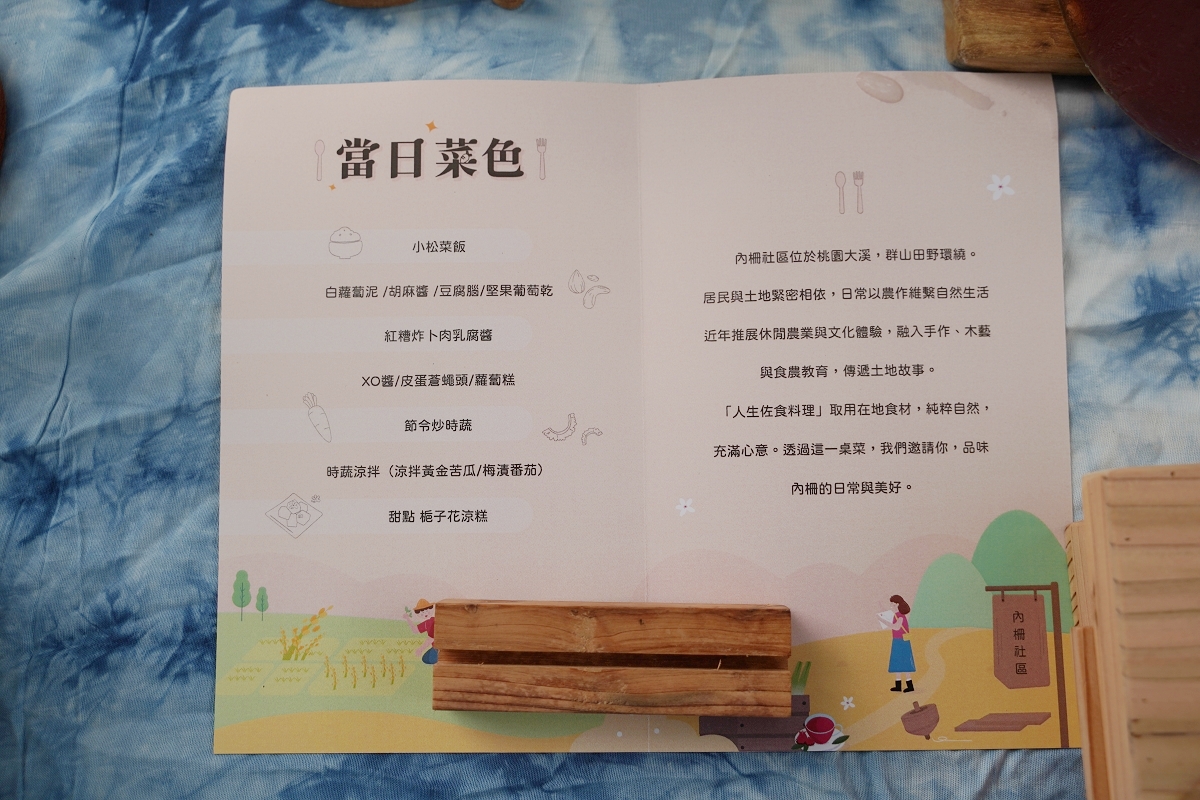 當日菜色
小松菜飯
白蘿蔔泥 /胡麻醬 /豆腐腦/堅果葡萄乾
紅糟炸卜肉乳腐醬
XO醬/皮蛋蒼蠅頭/蘿蔔糕
節令炒時蔬
時蔬涼拌（涼拌黃金苦瓜/梅漬番茄）
甜點 梔子花涼糕
內柵社區位於桃園大溪，群山田野環繞。
居民與土地緊密相依，日常以農作維繫自然生活
近年推展休閒農業與文化體驗，融入手作、木藝
與食農教育，傳遞土地故事。
「人生佐食料理」取用在地食材，純粹自然，
充滿心意。透過這一桌菜，我們邀請你，品味
內柵的日常與美好。
內柵社區